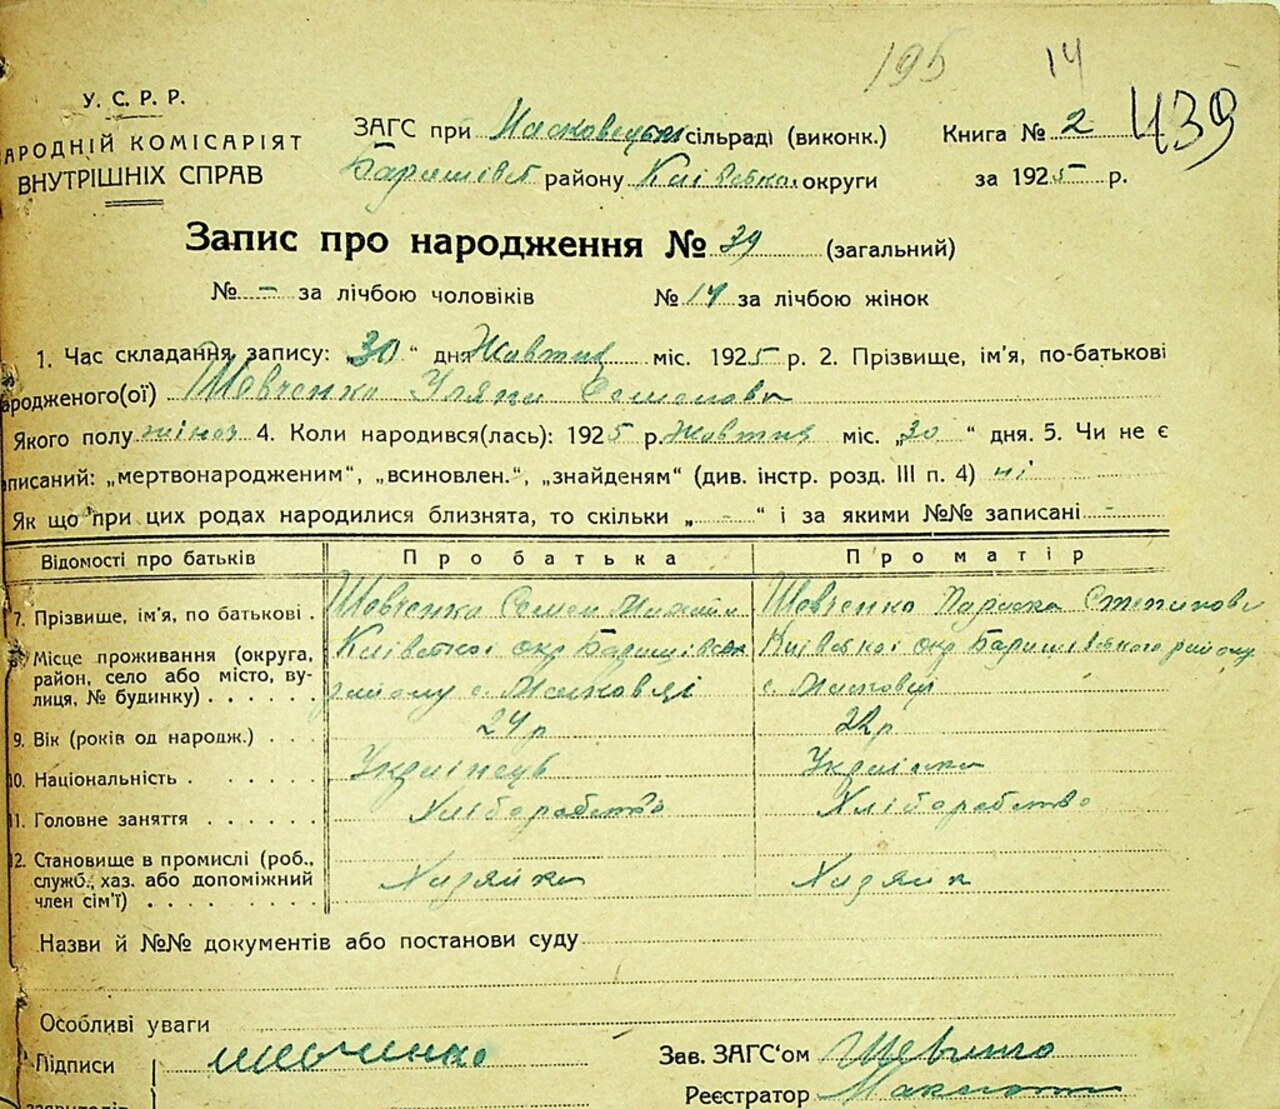 195 14
У. С. Р. Р.
АРОДНІЙ КОМІСАРІЯТ
ВНУТРІШНІХ СПРАВ
ЗАГС при Масковецькій сільраді (виконк.)
Баришівс району Київської округи
Книга № 2 439
за 1925 р.
Запис про народження № 39 (загальний)
№ - за лічбою чоловіків № 14 за лічбою жінок
1. Час складання запису: „30“ дня Жовтня міс. 1925 р. 2. Прізвище, ім'я, по-батькові
ародженого(ої) Шевченко Уляна Семенова
Якого полу жіноч 4. Коли народився(лась): 1925 р. Жовтня міс. „30“ дня. 5. Чи не є
писаний: „мертвонародженим“, „всиновлен.“, „знайденям“ (див. інстр. розд. III п. 4) ні
Як що при цих родах народилися близнята, то скільки „-“ і за якими №№ записані -
Відомості про батьків Про батька Про матір
7. Прізвище, ім'я, по батькові . Шевченко Семен Шевченко Параска Степанова
Місце проживання (округа, Київської окр Баришівськ Київської окр Баришівського району
район, село або місто, ву- району с. Масковці с. Масковці
лиця, № будинку) . . . . . .
9. Вік (років од народж.) . . . 24 р 22 р
10. Національність . . . . . . Українець Українка
11. Головне заняття . . . . . . Хліборобство Хліборобство
12. Становище в промислі (роб.,
служб., хаз. або допоміжний Хазяйка Хазяйк
член сім'ї) . . . . . . . .
Назви й №№ документів або постанови суду
Особливі уваги
Підписи шевченко Зав. ЗАГС‘ом
Реєстратор
заявителів